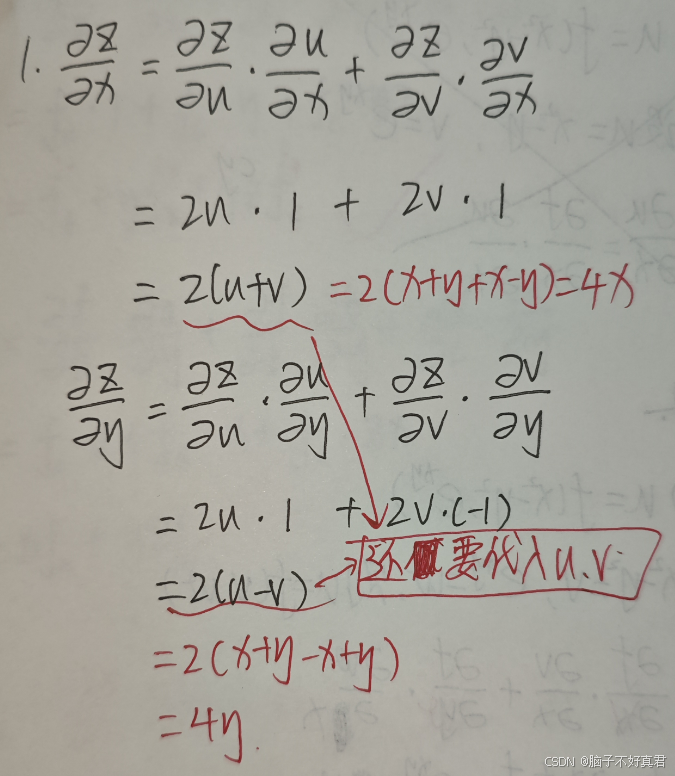 1. ∂z/∂x = ∂z/∂u · ∂u/∂x + ∂z/∂v · ∂v/∂x
= 2u · 1 + 2v · 1
= 2(u+v) = 2(x+y+x-y)=4x
∂z/∂y = ∂z/∂u · ∂u/∂y + ∂z/∂v · ∂v/∂y
= 2u · 1 + 2v·(-1)
= 2(u-v) 还要代入u.v.
= 2(x+y-x+y)
= 4y.
CSDN @脑子不好真君